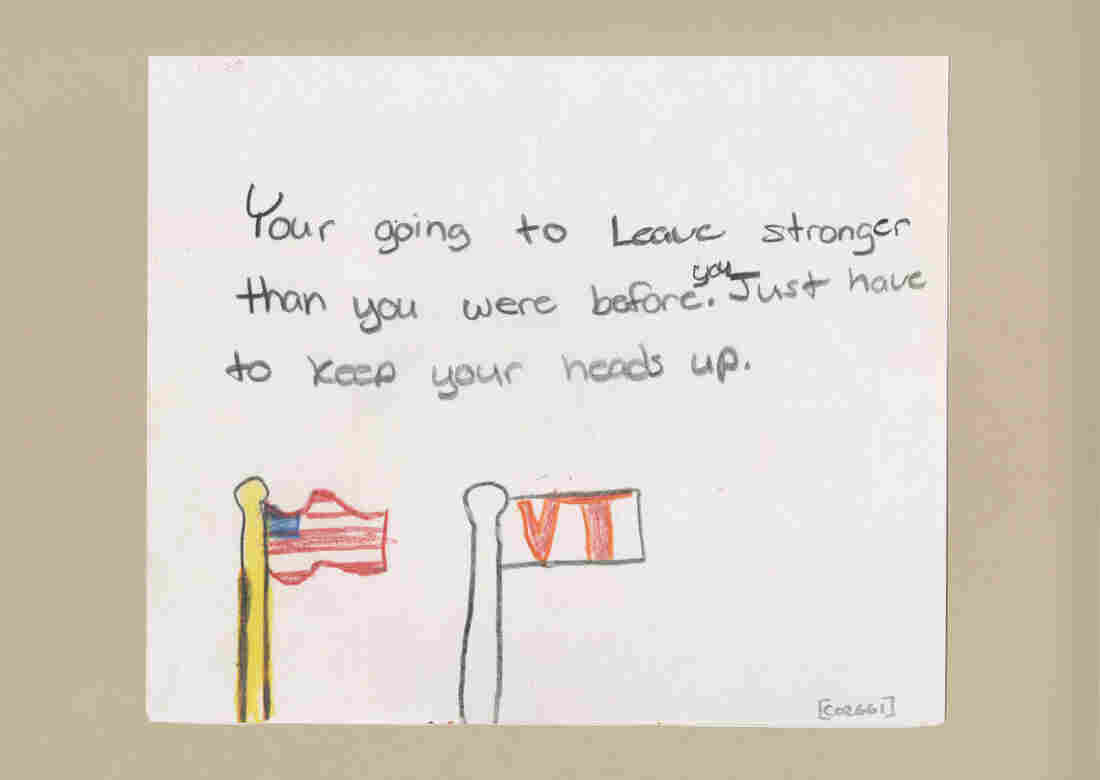 Your going to Leave stronger
than you were before. you Just have
to keep your heads up.
VT
[CORGGI]